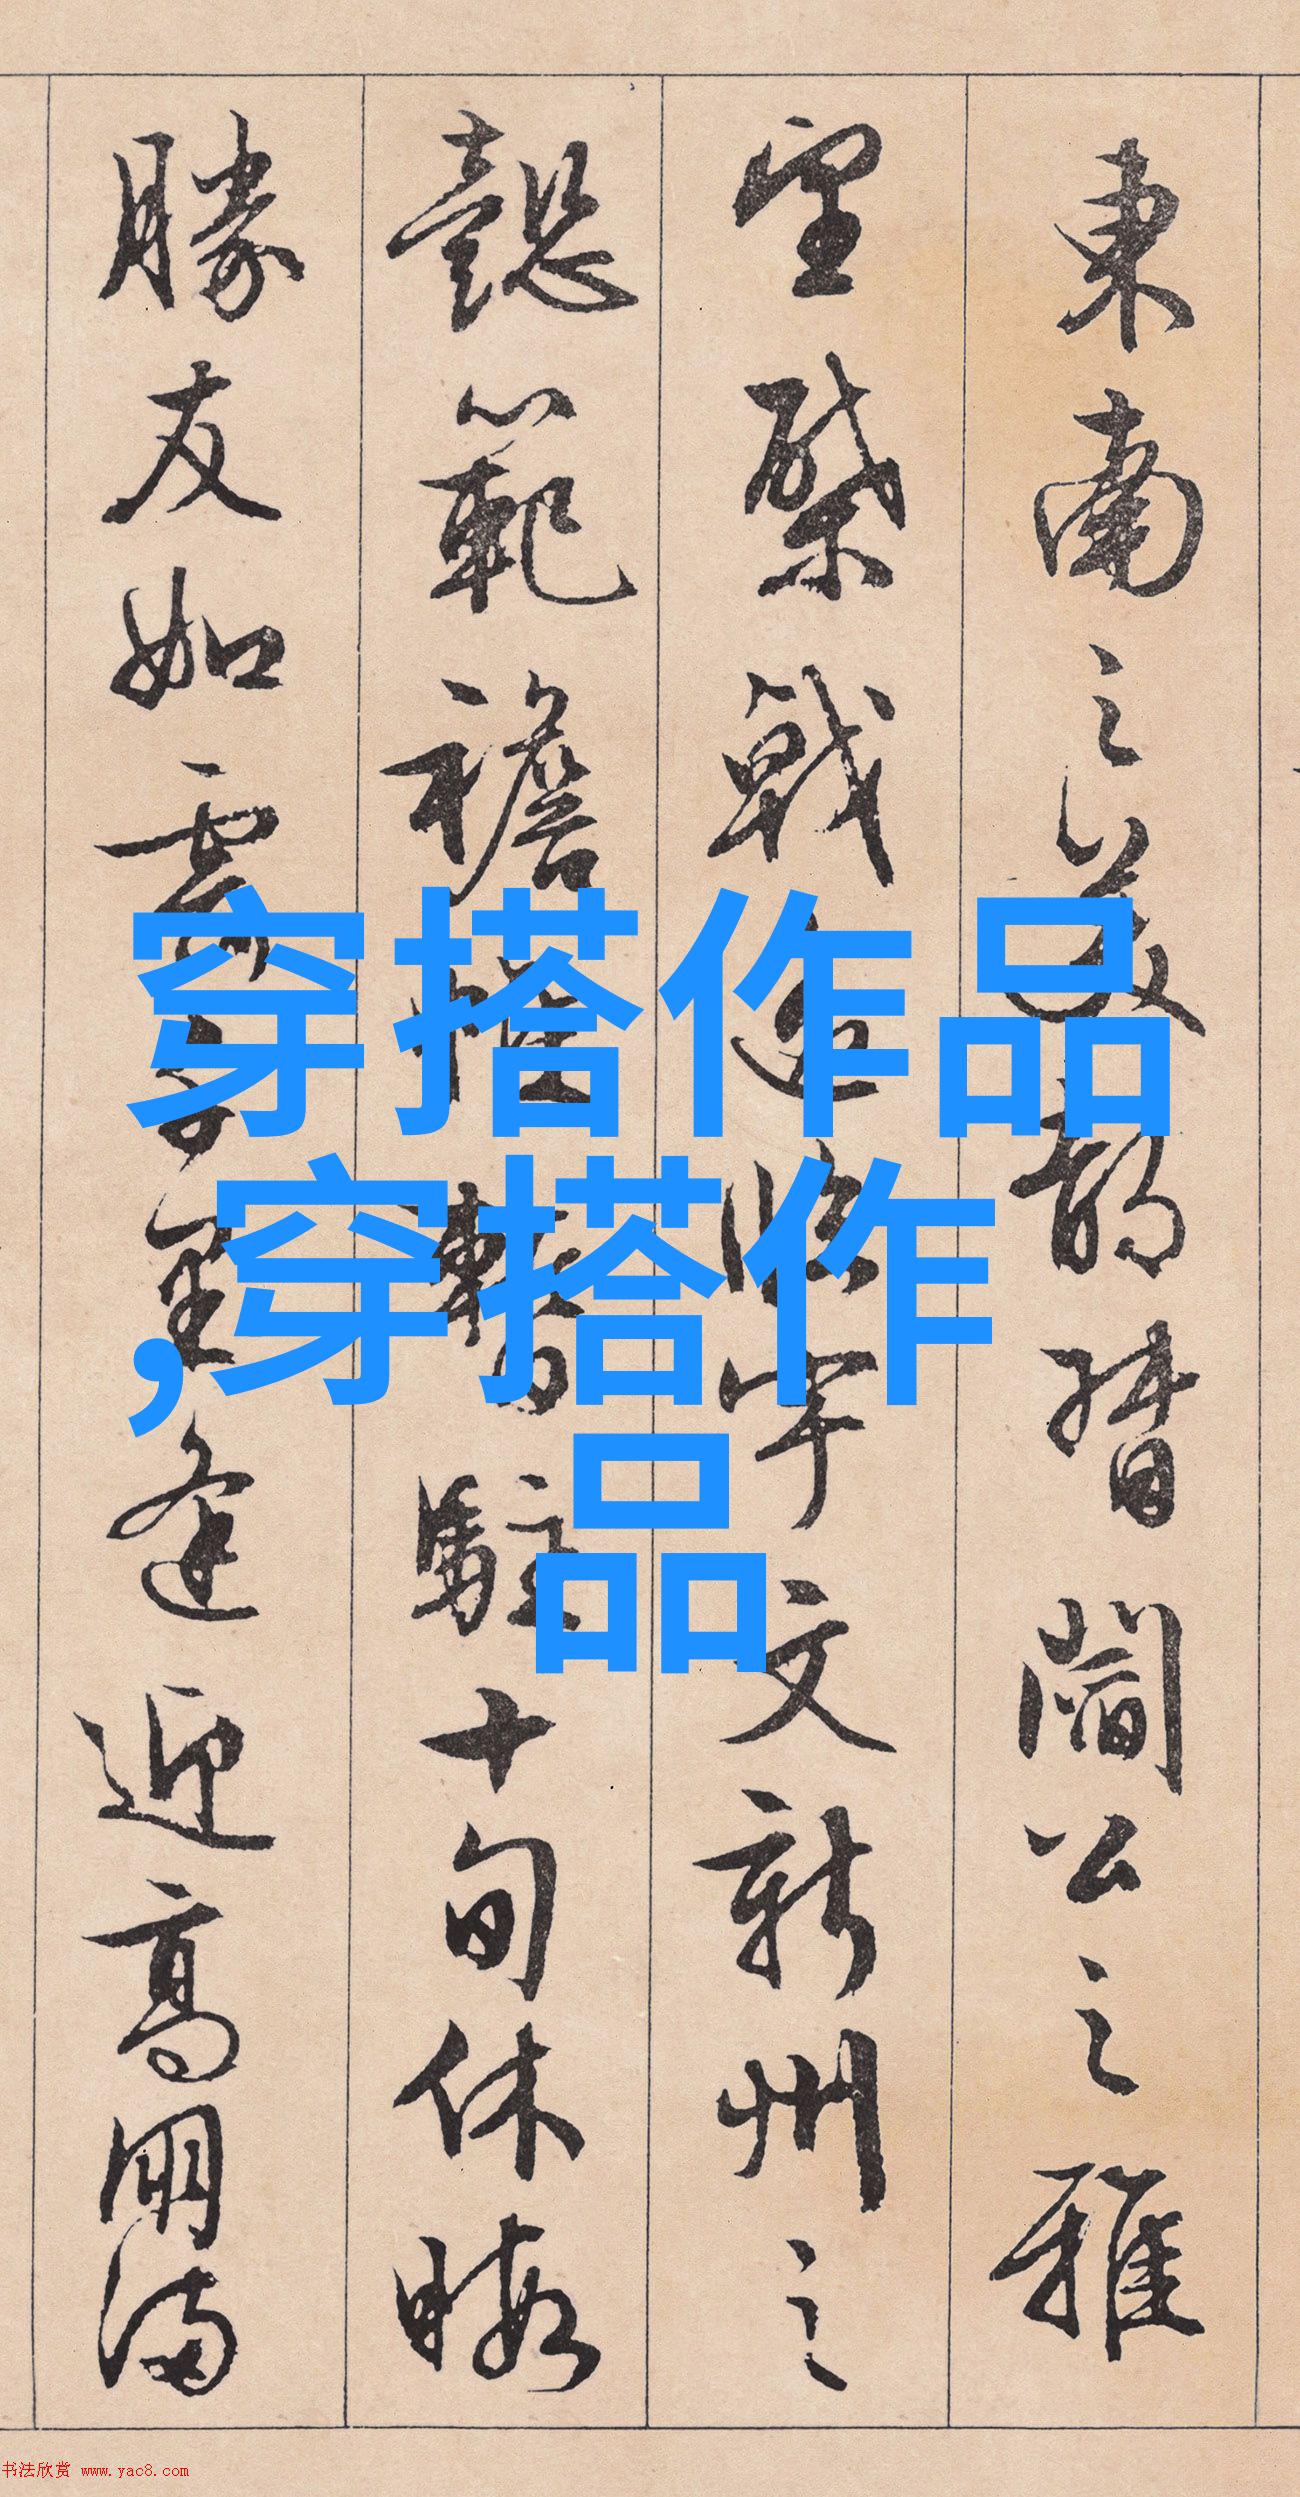 東南之美都督閻公之雅
望棨戟遙臨宇文新州之
懿範襜帷暫駐十旬休暇
勝友如雲千里逢迎高朋滿
穿搭作品
,穿搭作
品
书法欣赏 www.yac8.com